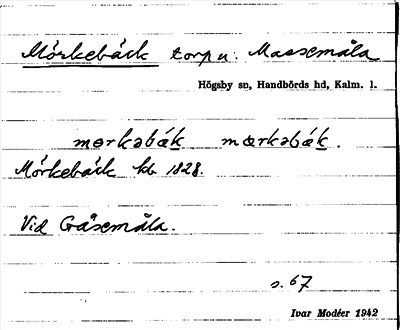 Mörkebäck torp u. Massemåla
Högsby sn, Handbörds hd, Kalm. l.
mørkəbäk mœrkəbæk.
Mörkebäck kb 1828.
Vid Gåsemåla.
s. 67
Ivar Modéer 1942